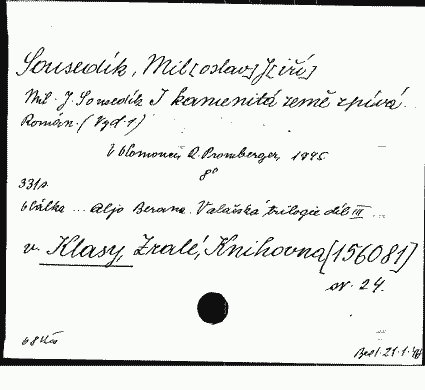 Sousedík, Mil[oslav] J[iří]
Mil. J. Sousedík I kamenitá země zpívá.
Román. (Vyd. 1)
V Olomouci, R. Promberger, 1945
8°
331 s.
Obálka ... Aljo Beran. Valašská trilogie díl III ...
v. Klasy, Zralé, Knihovna [156081]
sv. 24.
68 Kčs
21.1.